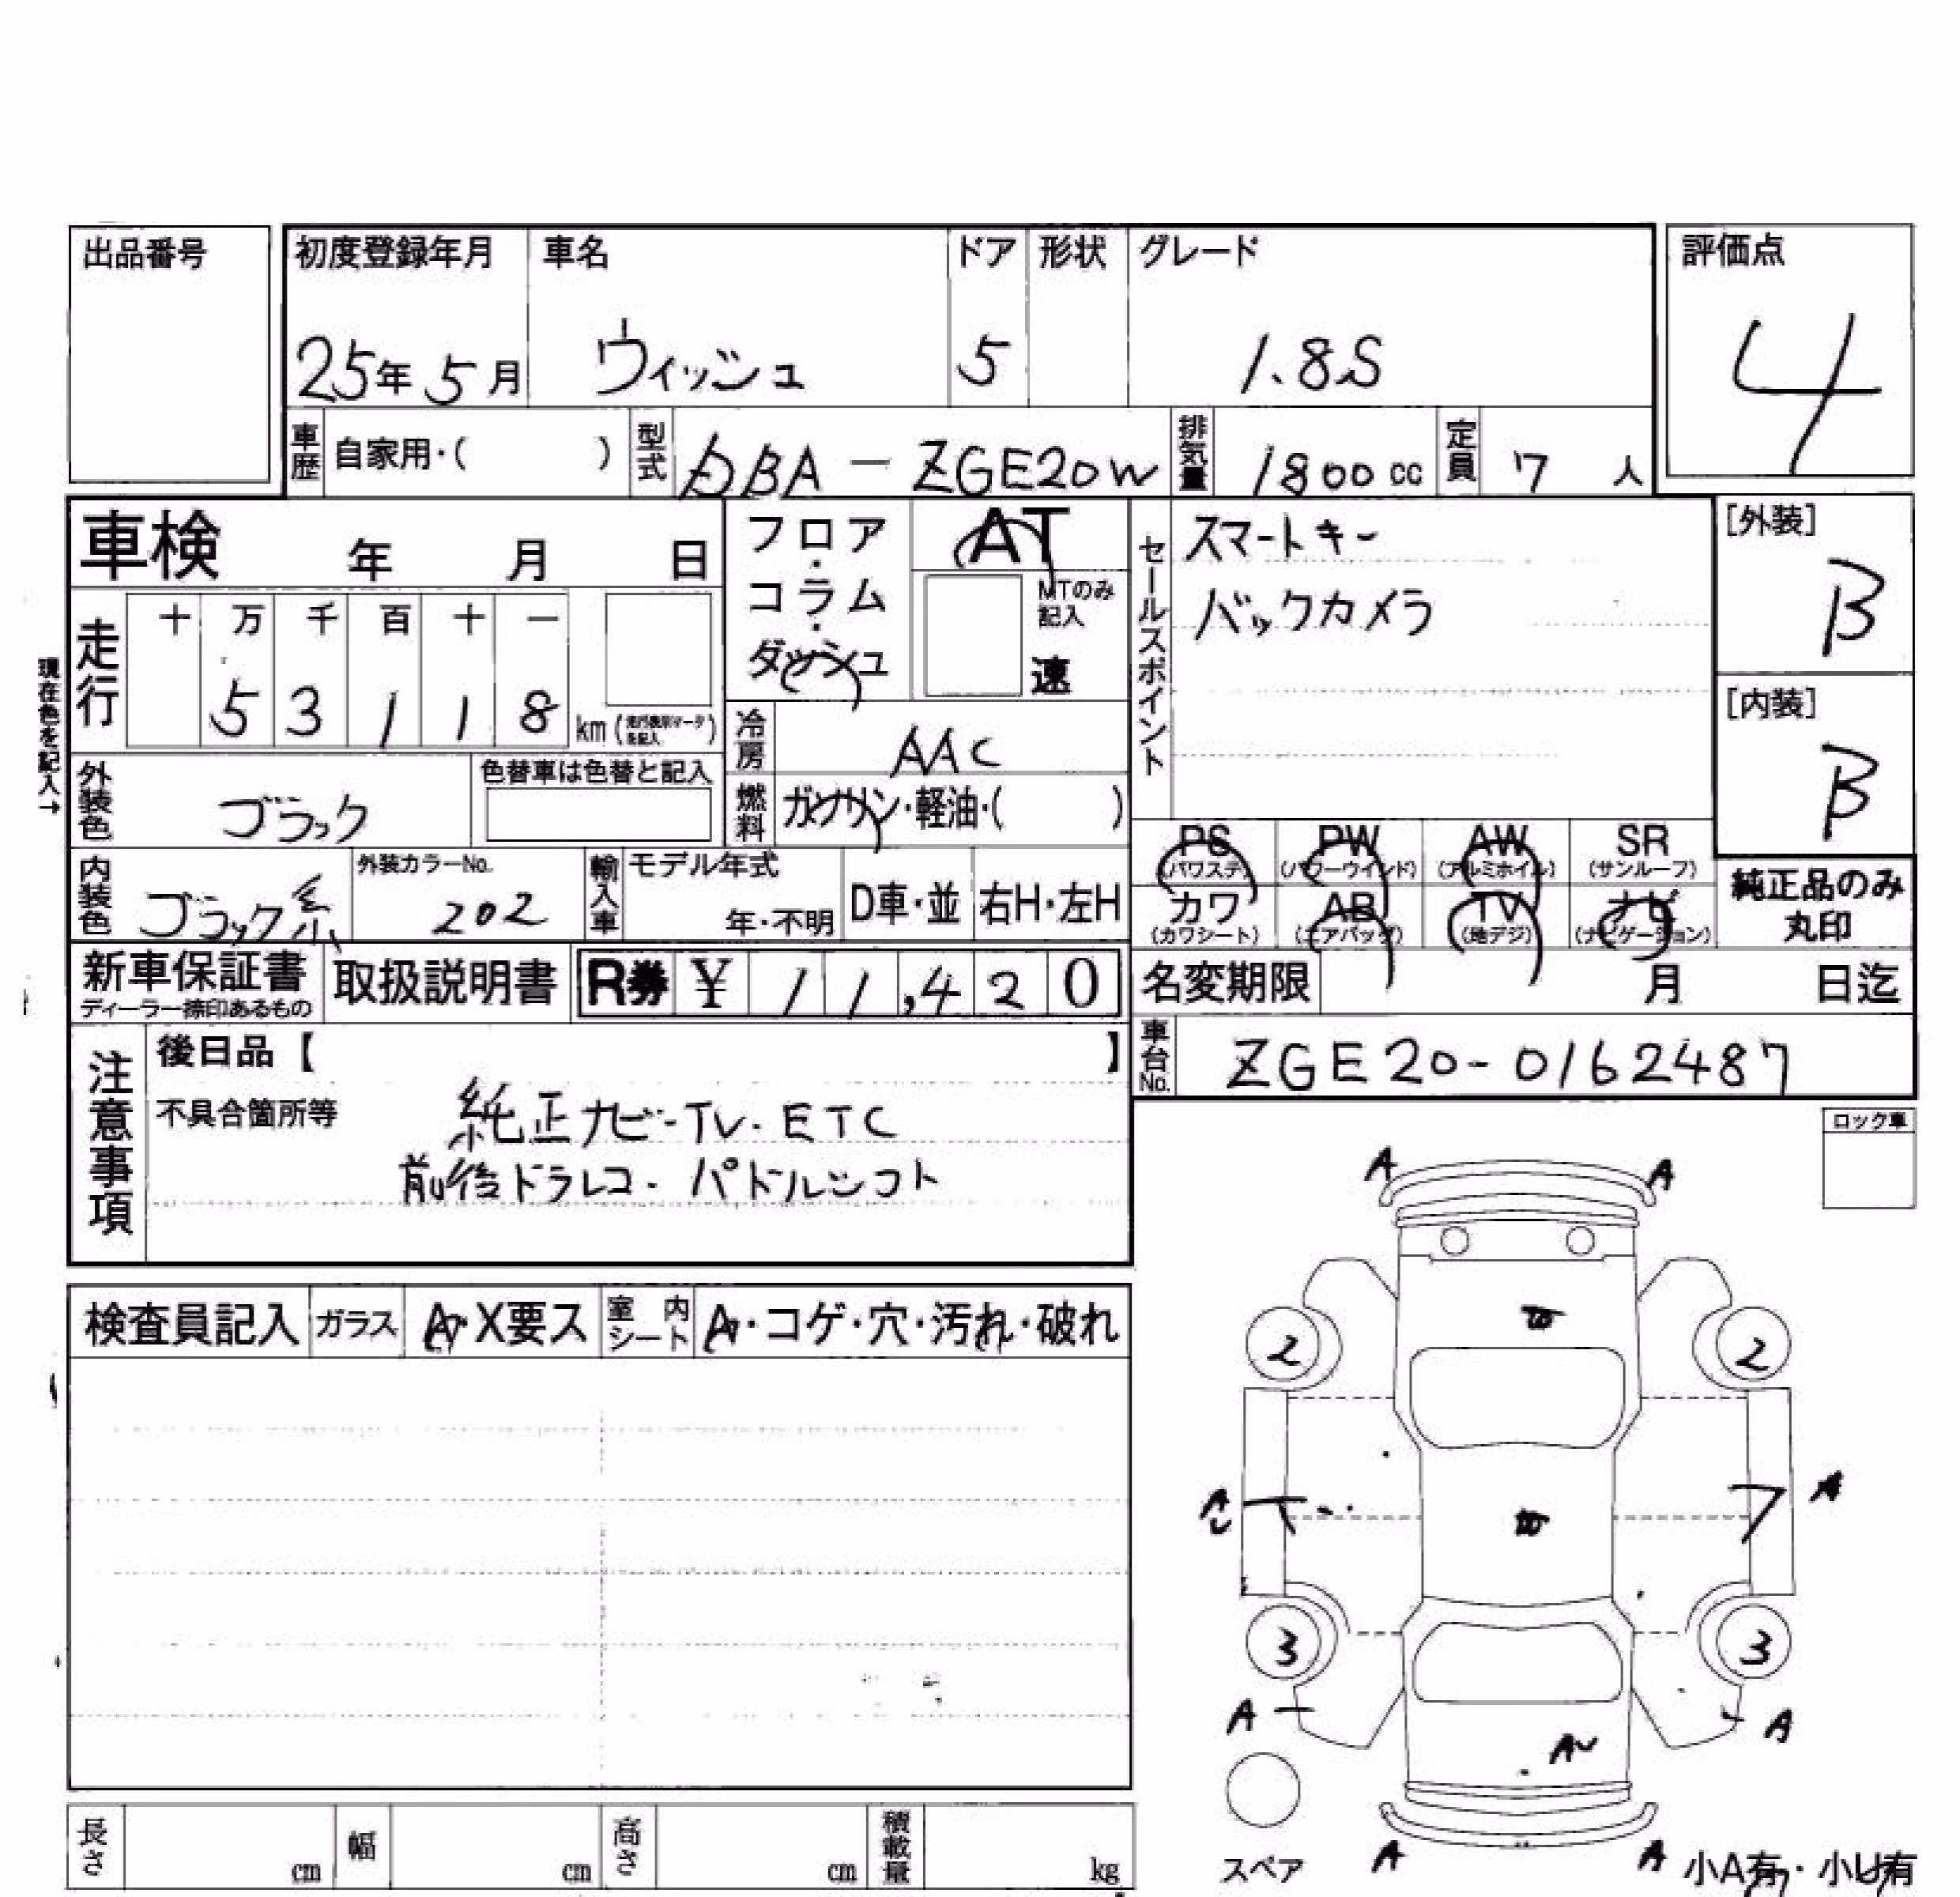 出品番号
初度登録年月 車名 ドア 形状 グレード 評価点
25年5月 ウィッシュ 5 1.8S 4
車歴 自家用・( ) 型式 DBA-ZGE20W 排気量 1800cc 定員 7人
車検 年 月 日
フロア・コラム・ダッシュ
AT
MTのみ記入
速
セールスポイント
スマートキー
バックカメラ
[外装]
B
[内装]
B
現在色を記入→
走行 十 万 千 百 十 一
5 3 1 1 8 km
冷房 AAC
外装色 ブラック 色替車は色替と記入
燃料 ガソリン・軽油・( )
内装色 ブラック系 外装カラーNo. 202 輸入車 モデル年式 年・不明 D車・並 右H・左H
PS (パワステ) PW (パワーウインド) AW (アルミホイル) SR (サンルーフ)
カワ (カワシート) AB (エアバッグ) TV (地デジ) ナビ (ナビゲーション)
純正品のみ丸印
新車保証書 ディーラー捺印あるもの 取扱説明書 R券 ¥ 11,420
名変期限 月 日迄
車台No. ZGE20-0162487
注意事項
後日品【 】
不具合箇所等
純正ナビ-TV.ETC
前後ドラレコ-パドルシフト
ロック車
検査員記入 ガラス A・X要ス 室内シート A・コゲ・穴・汚れ・破れ
A A
2 2
A
3 3
A A
A A
スペア
小A有・小U有
長さ cm 幅 cm 高さ cm 積載量 kg